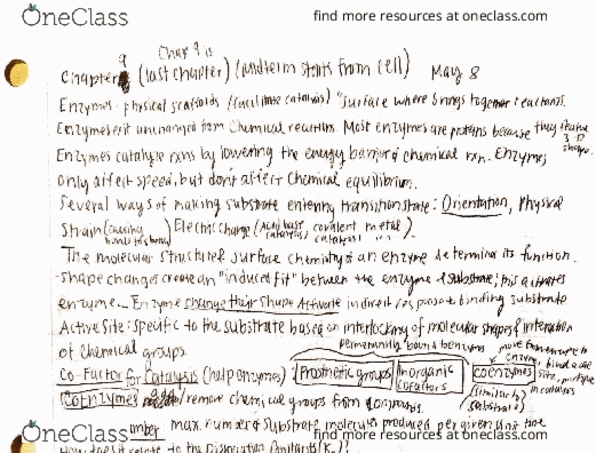 OneClass
find more resources at oneclass.com
Chap 9 is
9
Chapter (last chapter) (midterm starts from cell) May 8
Enzymes - physical scaffolds (facilitate catalysis) "surface where brings together reactants.
Enzymes exit unchanged from chemical reactions. Most enzymes are proteins because they have 3-D shape.
Enzymes catalyze rxns by lowering the energy barrier of chemical rxn. Enzymes
only affect speed, but don't affect chemical equilibrium.
Several ways of making substrate entering transition state: Orientation, Physical
Strain (causing bonds to bend) Electric charge (Acid base catalysis, covalent metal).
The molecular structure & surface chemistry of an enzyme determine its function.
-shape changes create an "induced fit" between the enzyme & substrate; this activates
enzyme. - Enzyme change their shape activate in direct response to binding substrate
Active Site: specific to the substrate based on interlocking of molecular shapes & interaction
of chemical groups.
permanently bound to enzyme
move from enzyme to enzyme, bind active site, participate in catalysis
Co-Factor for Catalysis (help enzymes): Prosthetic groups inorganic cofactors coenzymes (similarity substrate)
Coenzymes add/remove chemical groups from compounds.
OneClass
number max. number of substrate molecules produced per given unit time
find more resources at oneclass.com
How does it relate to the Dissociation Constants (K